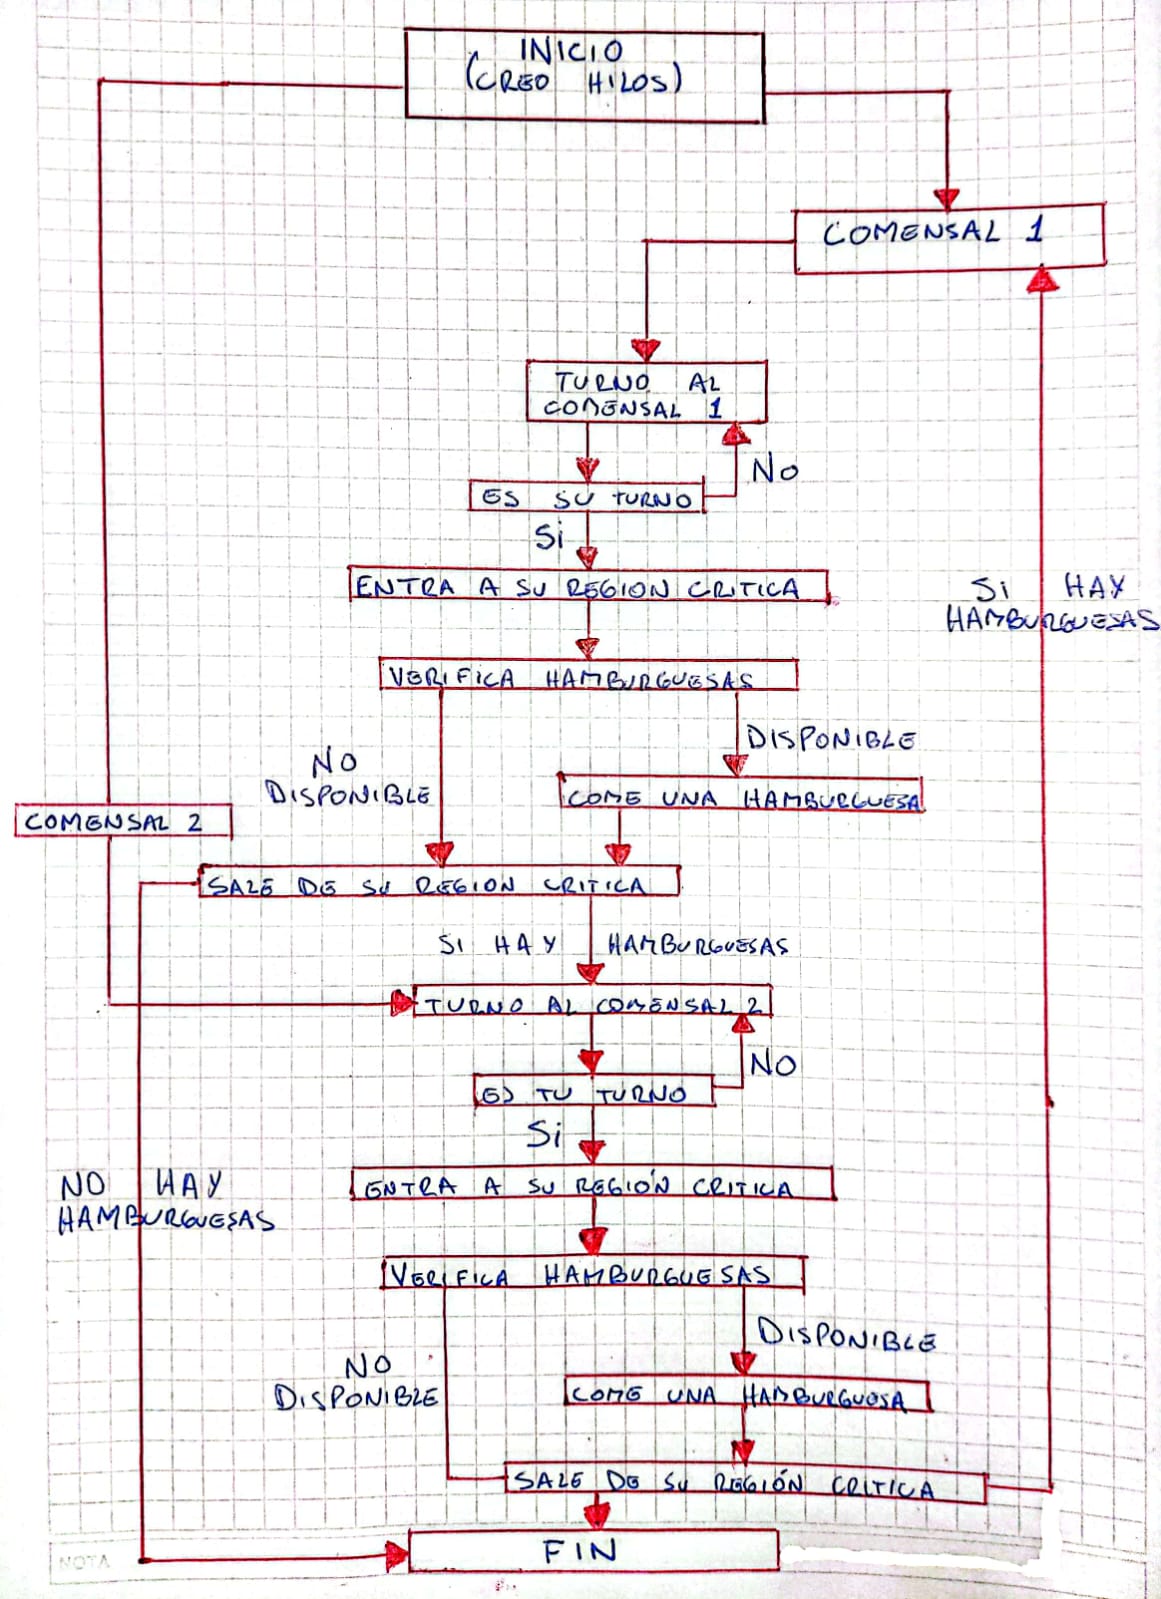 INICIO
(CREO HILOS)
COMENSAL 1
TURNO AL
COMENSAL 1
NO
ES SU TURNO
Si
ENTRA A SU REGION CRITICA
Si HAY
HAMBURGUESAS
VERIFICA HAMBURGUESAS
DISPONIBLE
NO
DISPONIBLE
COME UNA HAMBURGUESA
COMENSAL 2
SALE DE SU REGION CRITICA
SI HAY HAMBURGUESAS
TURNO AL COMENSAL 2
NO
ES TU TURNO
Si
ENTRA A SU REGIÓN CRITICA
NO HAY
HAMBURGUESAS
VERIFICA HAMBURGUESAS
DISPONIBLE
NO
DISPONIBLE
COME UNA HAMBURGUESA
SALE DE SU REGIÓN CRITICA
FIN
NOTA